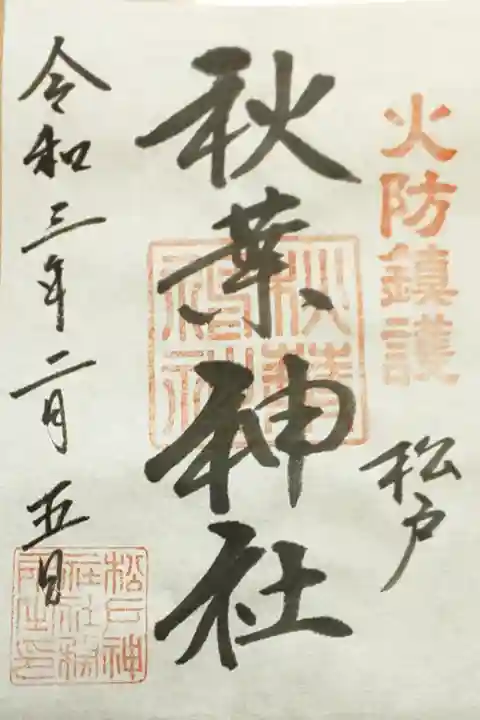 火防鎮護
松戸
秋葉神社
秋葉神社
令和三年二月五日
松戸神
社社務
所之印